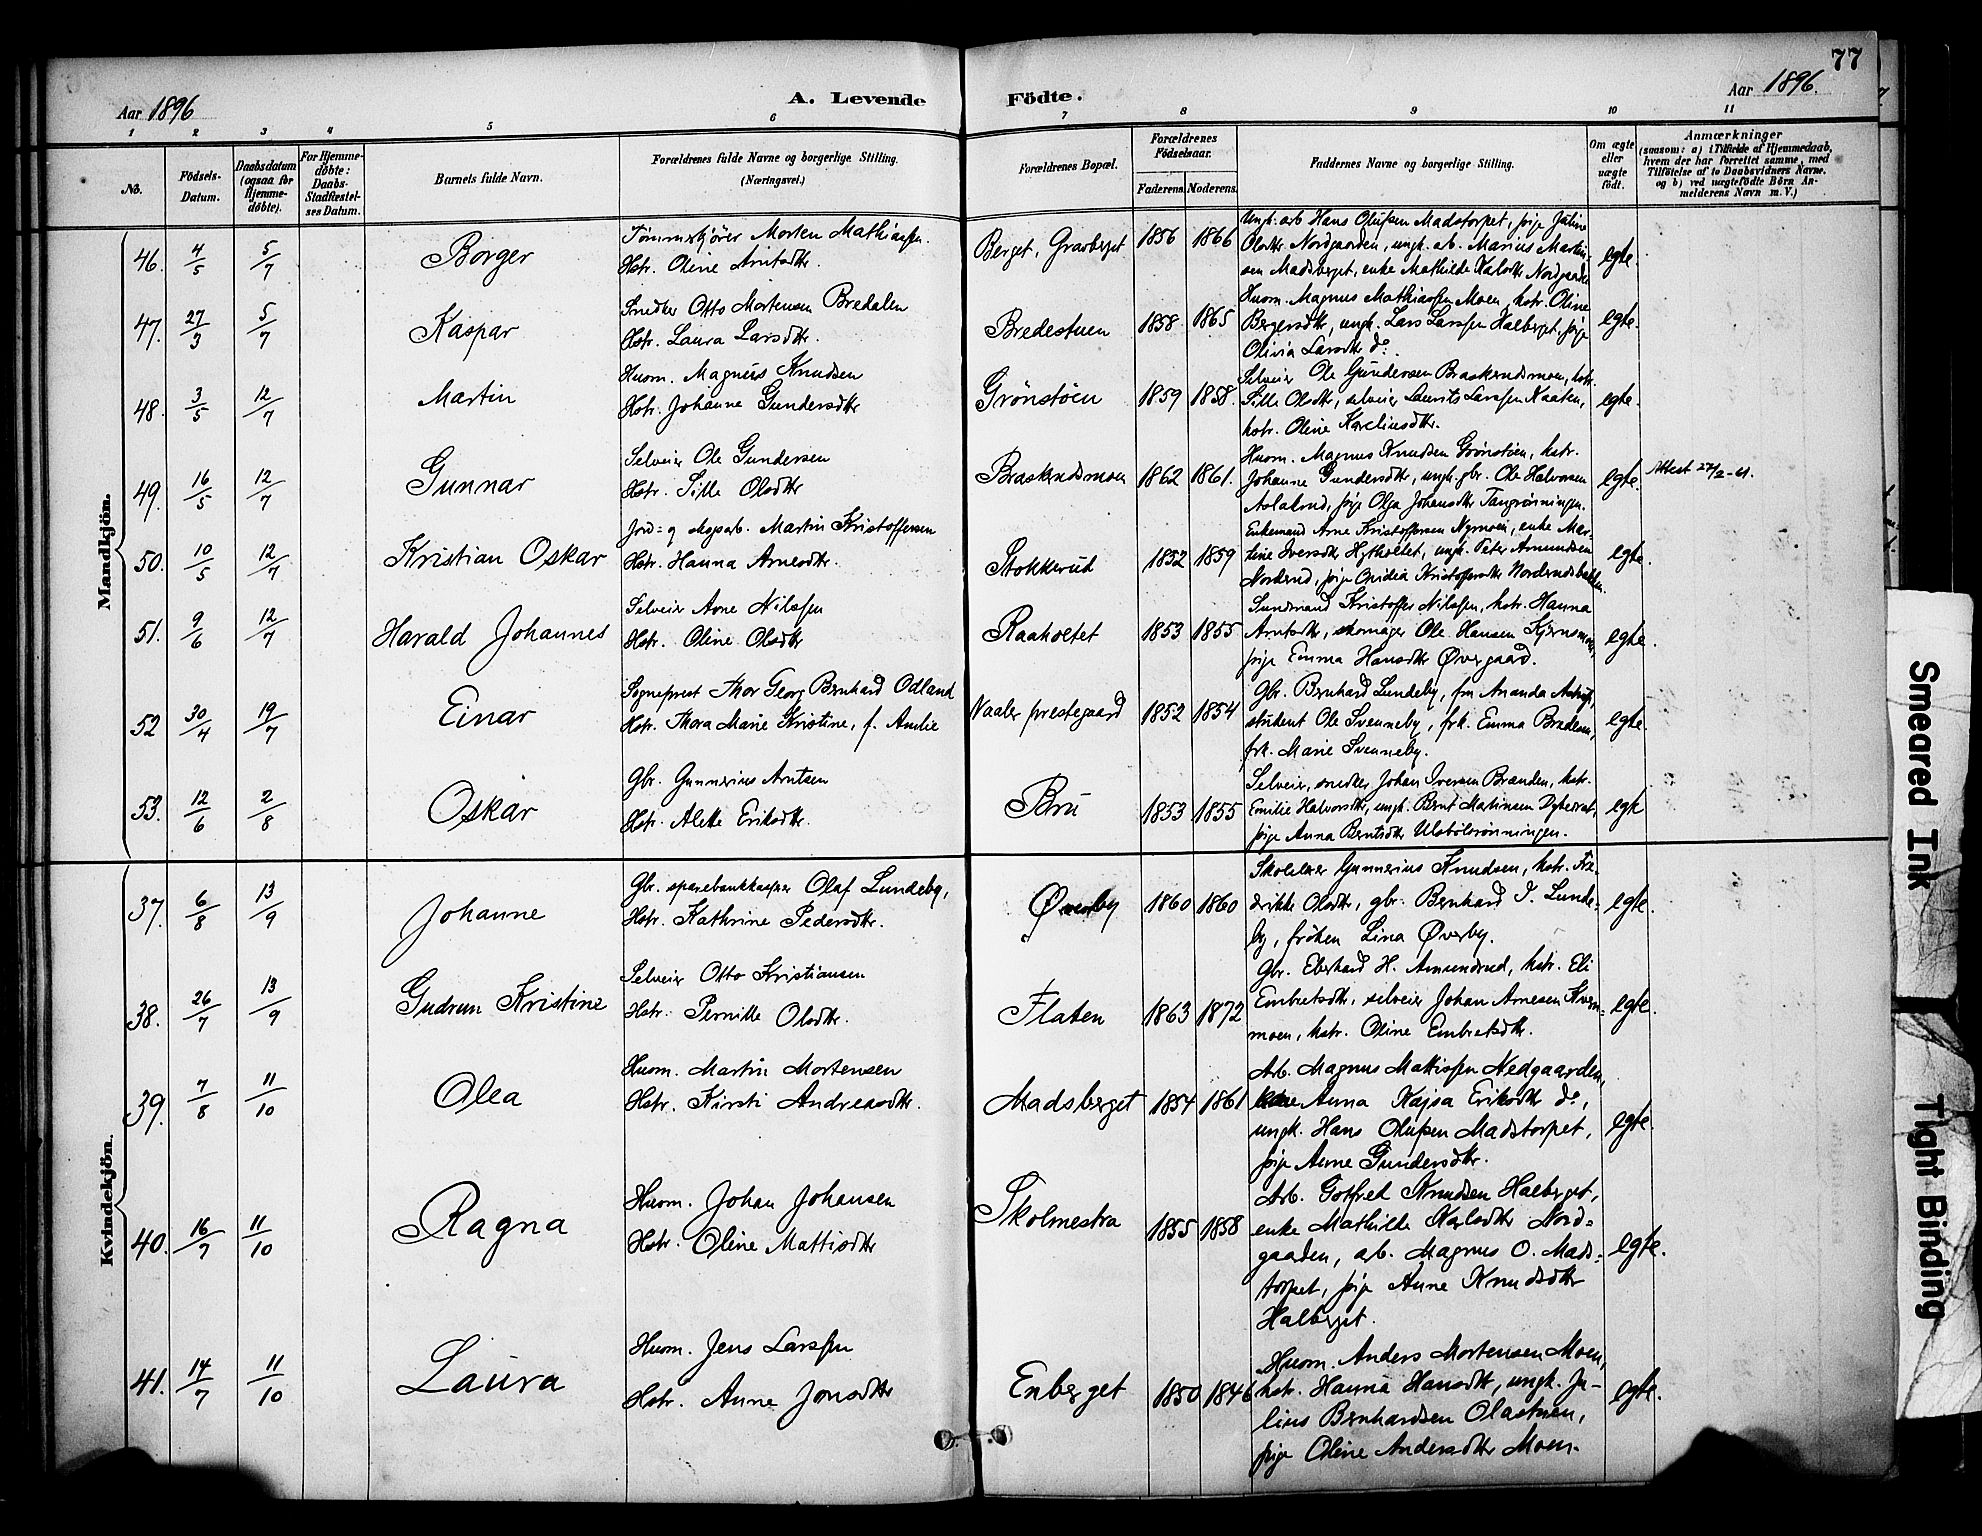 77
Aar 1896
A. Levende
Födte.
Aar 1896.
1 2 3 4 5 6 7 8 9 10 11
No.
Födsels-Datum.
Daabsdatum (ogsaa for Hjemme-döbte).
For Hjemme-döbte: Daabs-Stadfæstel-ses Datum.
Barnets fulde Navn.
Forældrenes fulde Navne og borgerlige Stilling. (Næringsvei.)
Forældrenes Bopæl.
Forældrenes Födselsaar.
Faderens. Moderens.
Faddernes Navne og borgerlige Stilling.
Om ægte eller uægte födt.
Anmærkninger
(saasom: a) i Tilfælde af Hjemmedaab, hvem der har forrettet samme, med Tilföielse af to Daabsvidners Navne, og b) ved uægtefödte Börn An-melderens Navn m. V.)
Mandkjön.
46. 4/5 5/7 Borger
Tømmerkjører Morten Mathiassen.
Hstr. Oline Arntsdtr.
Berget, Graaberget 1856 1866
Ungk. arb. Hans Olufsen Madstorpet, pige Juline
Olsdtr. Nordgaarden, ungk. ab. Marius Martin-
sen Madsberget, enke Mathilde Karlsdtr Nordgaarden
egte.
47. 27/3 5/7 Kaspar
Snedker Otto Mortensen Bredalen
Hstr. Laura Larsdtr.
Bredestuen 1858 1865
Husm. Magnus Mathiassen Moen, hstr. Oline
Bergersdtr, ungk. Lars Larssen Halberget, pige
Olivia Larsdtr do.
egte.
48. 3/5 12/7 Martin
Husm. Magnus Knudsen
Hstr. Johanne Gundersdtr
Grønstøen 1859 1858.
Selveier Ole Gundersen Braskerudsmoen, hstr.
Sille Olsdtr, selveier Laurits Larssen Kaaten,
hstr. Oline Karelinsdtr.
egte.
49. 16/5 12/7 Gunnar
Selveier Ole Gundersen
Hstr. Sille Olsdtr
Braskerudsmoen 1862 1861.
Husm. Magnus Knudsen Grønstøen, hstr.
Johanne Gundersdtr, ungk. gbr. Ole Halvorsen
Aslakrud, pige Olga Johansdtr Tangrønningen.
egte.
Attest 27/2-61.
50. 10/5 12/7 Kristian Oskar
Jord- og skogarb. Martin Kristoffersen
Hstr. Hanna Arnesdtr.
Stokkerud 1852 1859
Enkemand Arne Kristoffersen Nymoen, enke Mar-
tine Iversdtr Hytholtet, ungk. Peter Amundsen
Norderud, pige Ovidia Kristoffersdtr Norderudsbakken.
egte.
51. 9/6 12/7 Harald Johannes
Selveier Arne Nilssen
Hstr. Oline Olsdtr
Raaholtet 1853 1855
Sundmand Kristoffer Nilssen, hstr. Hanna
Arntsdtr, skomager Ole Hansen Kjernsmoen,
pige Emma Hansdtr Øvergaard.
egte.
52 30/4 19/7 Einar
Sogneprest Thor Georg Bernhard Odland
Hstr. Thora Marie Kristine, f. Amlie
Vaaler prestegaard 1852 1854
Gbr. Bernhard Lundeby, fru Ananda
student Ole Svenneby, frk. Emma Bredesen,
frk. Marie Svenneby.
egte.
53. 12/6 2/8 Oskar
Gbr. Gunnerius Arntsen
Hstr. Alette Eriksdtr.
Bru 1853 1855
Selveier, snedker Johan Iversen Brænden, hstr.
Emilie Halvorsdtr, ungk. Bernt Martinsen
pige Anna Berntsdtr Ulsbölrønningen.
egte
Kvindekjön.
37. 6/8 13/9 Johanne
Gbr. sparebankkasserer Olaf Lundeby,
Hstr. Kathrine Pedersdtr.
Øverby 1860 1860
Skolelærer Gunnerius Knudsen, hstr. Fre-
drikke Olsdtr, gbr. Bernhard I. Lunde-
by, frøken Lina Øverby.
egte.
38. 26/7 13/9 Gudrun Kristine
Selveier Otto Kristiansen
Hstr. Pernille Olsdtr.
Flaten 1863 1872
Gbr. Eberhard H. Amundrud, hstr. Eli
Embretsdtr, selveier Johan Arnesen Kvern-
moen, hstr. Oline Embretsdtr.
egte.
39. 7/8 11/10 Olea
Husm. Martin Mortensen
Hstr. Kirsti Andreasdtr.
Madsberget 1854 1861
Arb. Magnus Mattissen Nedgaarden,
Anna Kajsa Eriksdtr do,
ungk. Hans Olufsen Madstorpet,
pige Anne Gundersdtr.
egte.
40. 16/7 11/10 Ragna
Husm. Johan Johansen
Hstr. Oline Mattisdtr
Skolmestra 1855 1858
Arb. Gotfred Knudsen Halberget,
enke Mathilde Karlsdtr Nord-
gaarden, arb. Magnus O. Mads-
torpet, pige Anne Knudsdtr
Halberget.
egte.
41. 14/7 11/10 Laura
Husm. Jens Larssen
Hstr. Anne Jonsdtr
Enberget 1850 1846
Husm. Anders Mortensen Moen,
hstr. Hanna Hansdtr, ungk. Ju-
lius Bernhardsen Olastuen,
pige Oline Andersdtr Moen.
egte.
Smeared Ink
Tight Binding